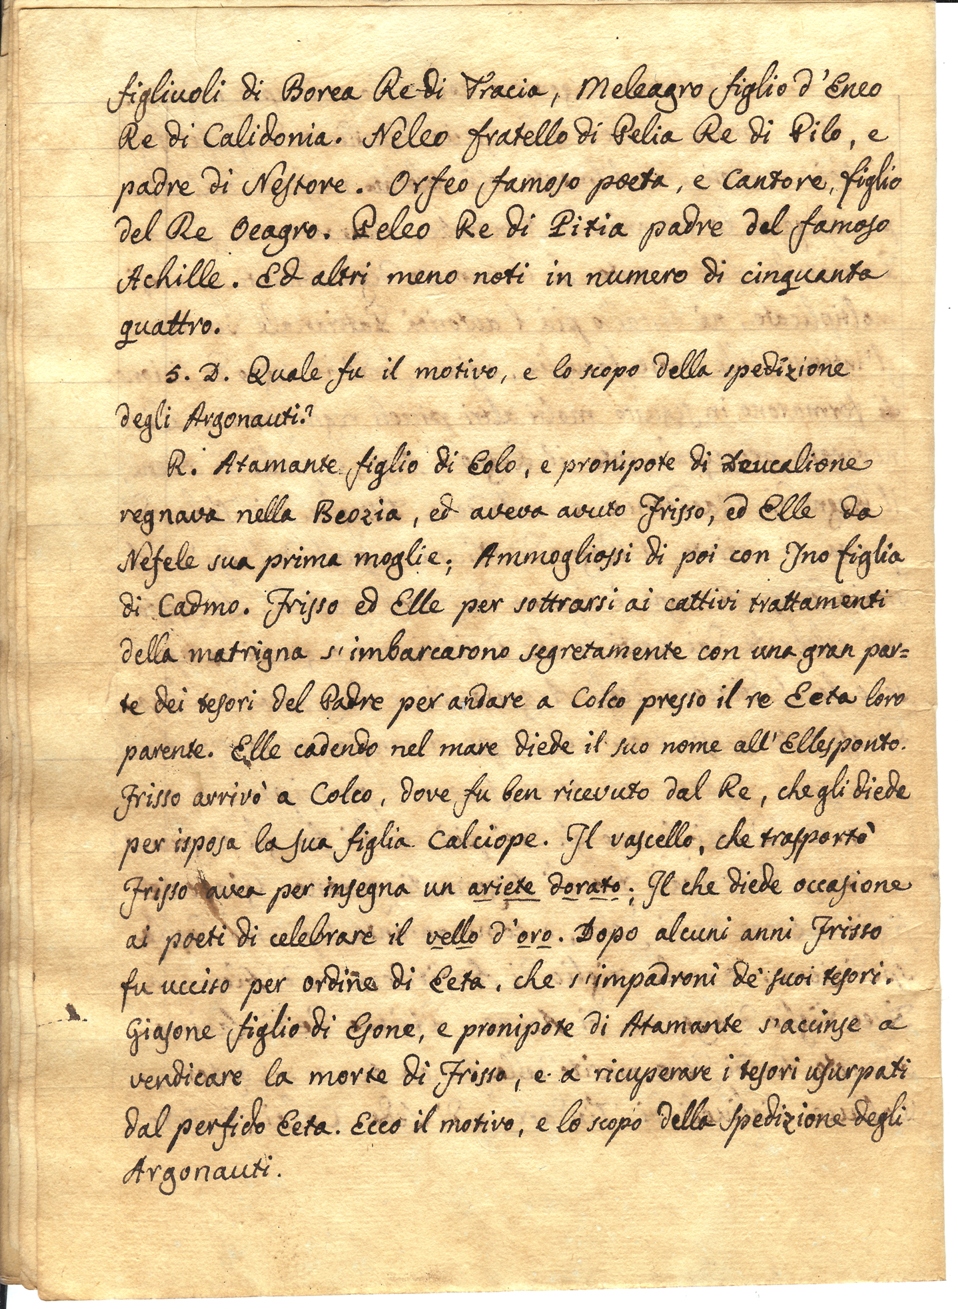 figliuoli di Borea Re di Tracia, Meleagro figlio d'Eneo
Re di Calidonia. Neleo fratello di Pelia Re di Pilo, e
padre di Nestore. Orfeo famoso poeta, e Cantore, figlio
del Re Oeagro. Peleo Re di Pitia padre del famoso
Achille. Ed altri meno noti in numero di cinquanta
quattro.
5. D. Quale fu il motivo, e lo scopo della spedizione
degli Argonauti?
R. Atamante figlio di Eolo, e pronipote di Deucalione
regnava nella Beozia, ed aveva avuto Frisso, ed Elle da
Nefele sua prima moglie; Ammogliossi di poi con Ino figlia
di Cadmo. Frisso ed Elle per sottrarsi ai cattivi trattamenti
della matrigna s'imbarcarono segretamente con una gran par=
te dei tesori del Padre per andare a Colco presso il re Eeta loro
parente. Elle cadendo nel mare diede il suo nome all'Ellesponto.
Frisso arrivò a Colco, dove fu ben ricevuto dal Re, che gli diede
per isposa la sua figlia Calciope. Il vascello, che trasportò
Frisso avea per insegna un ariete dorato; Il che diede occasione
ai poeti di celebrare il vello d'oro. Dopo alcuni anni Frisso
fu ucciso per ordine di Eeta, che s'impadronì de' suoi tesori.
Giasone figlio di Esone, e pronipote di Atamante s'accinse a
vendicare la morte di Frisso, e a ricuperare i tesori usurpati
dal perfido Eeta. Ecco il motivo, e lo scopo della spedizione degli
Argonauti.